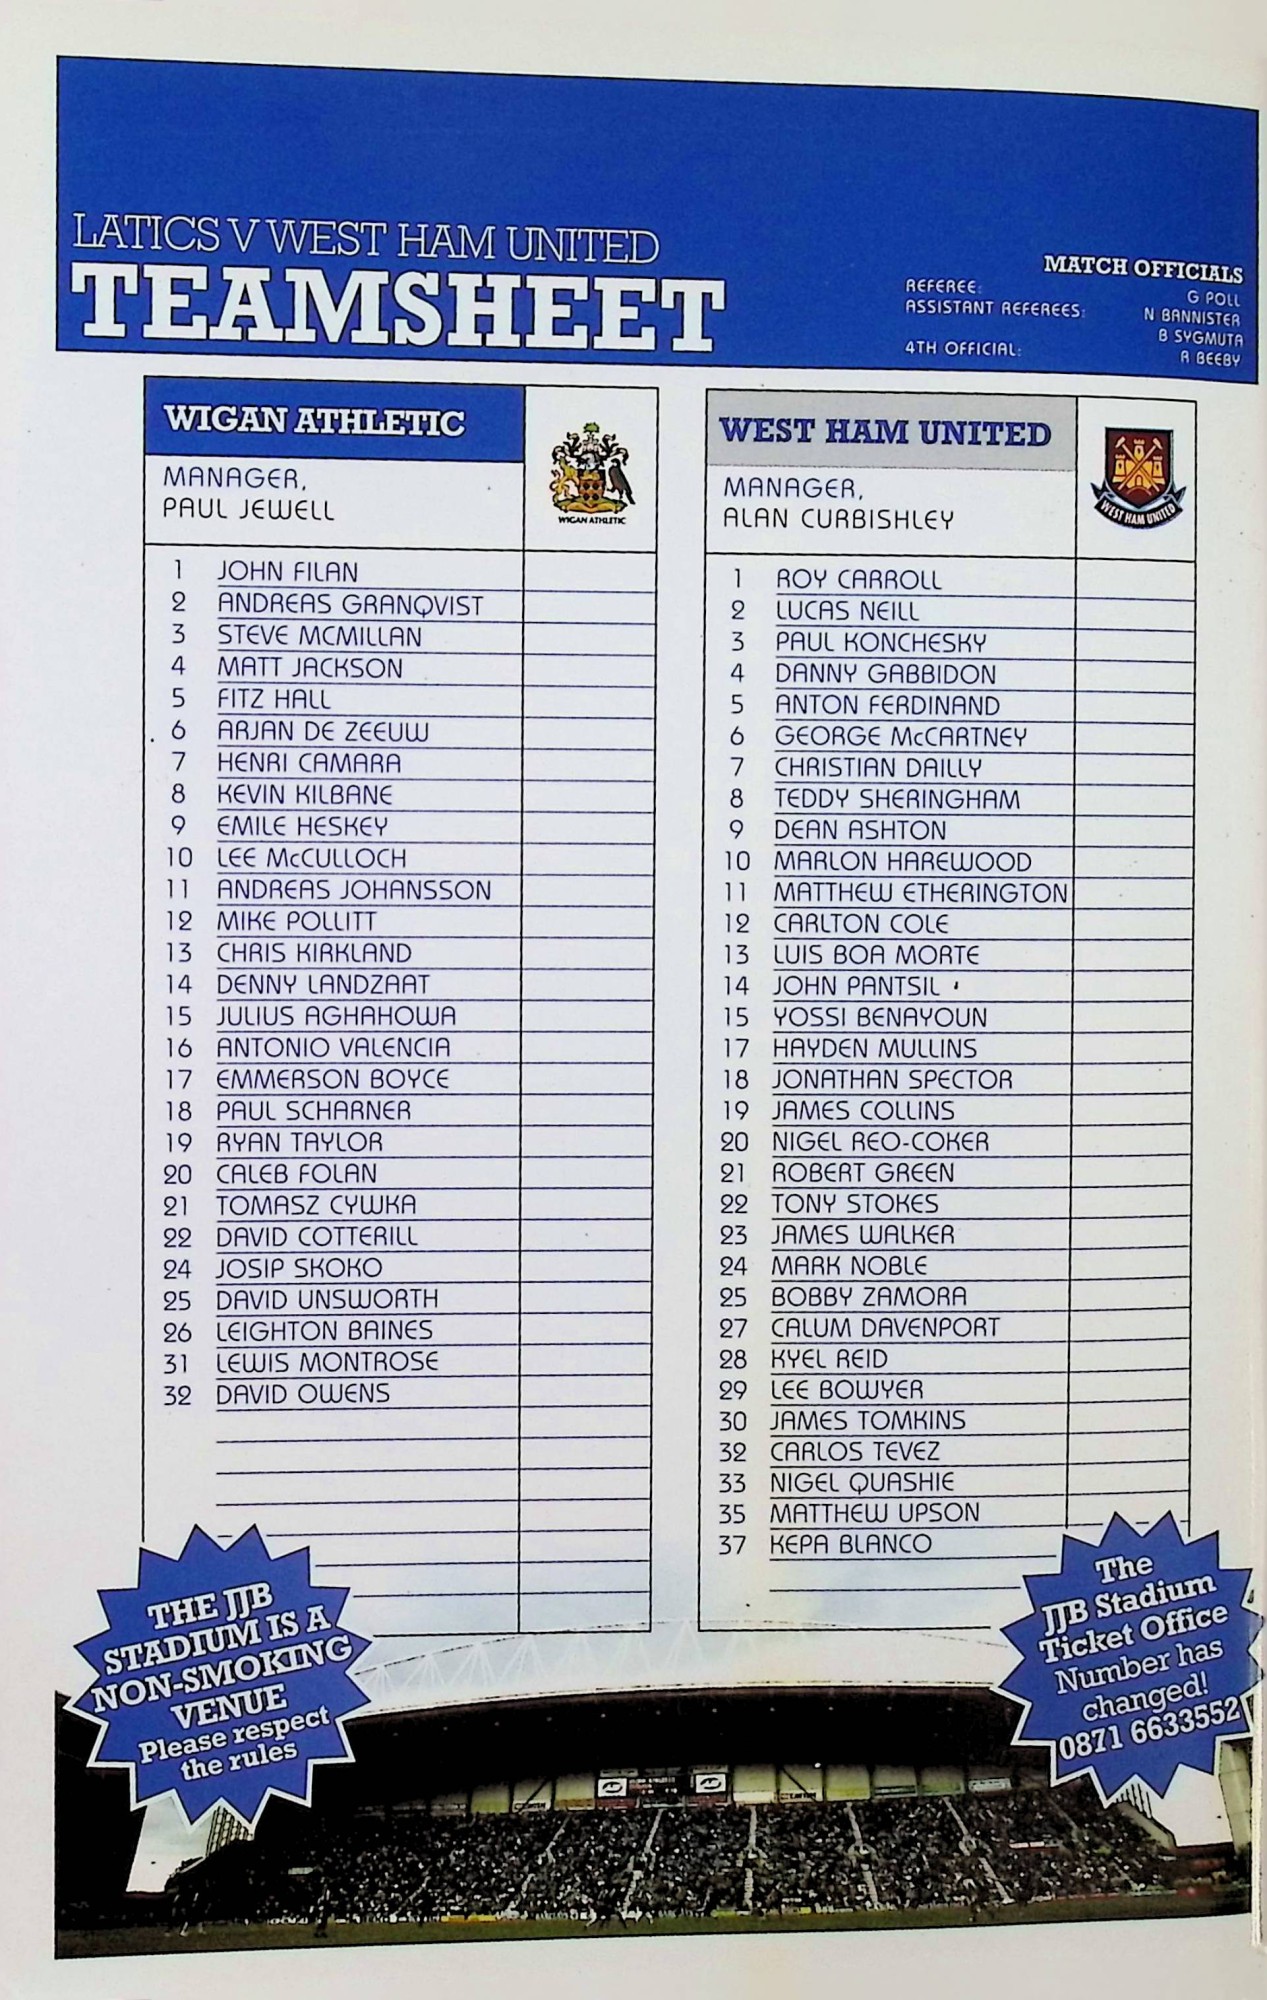 LATICS V WEST HAM UNITED
TEAMSHEET
MATCH OFFICIALS
REFEREE: G POLL
ASSISTANT REFEREES: N BANNISTER
B SYGMUTA
4TH OFFICIAL: R BEEBY
WIGAN ATHLETIC
MANAGER,
PAUL JEWELL
WIGAN ATHLETIC
1 JOHN FILAN
2 ANDREAS GRANQVIST
3 STEVE MCMILLAN
4 MATT JACKSON
5 FITZ HALL
6 ARJAN DE ZEEUW
7 HENRI CAMARA
8 KEVIN KILBANE
9 EMILE HESKEY
10 LEE McCULLOCH
11 ANDREAS JOHANSSON
12 MIKE POLLITT
13 CHRIS KIRKLAND
14 DENNY LANDZAAT
15 JULIUS AGHAHOWA
16 ANTONIO VALENCIA
17 EMMERSON BOYCE
18 PAUL SCHARNER
19 RYAN TAYLOR
20 CALEB FOLAN
21 TOMASZ CYWKA
22 DAVID COTTERILL
24 JOSIP SKOKO
25 DAVID UNSWORTH
26 LEIGHTON BAINES
31 LEWIS MONTROSE
32 DAVID OWENS
WEST HAM UNITED
MANAGER,
ALAN CURBISHLEY
WEST HAM UNITED
1 ROY CARROLL
2 LUCAS NEILL
3 PAUL KONCHESKY
4 DANNY GABBIDON
5 ANTON FERDINAND
6 GEORGE McCARTNEY
7 CHRISTIAN DAILLY
8 TEDDY SHERINGHAM
9 DEAN ASHTON
10 MARLON HAREWOOD
11 MATTHEW ETHERINGTON
12 CARLTON COLE
13 LUIS BOA MORTE
14 JOHN PANTSIL
15 YOSSI BENAYOUN
17 HAYDEN MULLINS
18 JONATHAN SPECTOR
19 JAMES COLLINS
20 NIGEL REO-COKER
21 ROBERT GREEN
22 TONY STOKES
23 JAMES WALKER
24 MARK NOBLE
25 BOBBY ZAMORA
27 CALUM DAVENPORT
28 KYEL REID
29 LEE BOWYER
30 JAMES TOMKINS
32 CARLOS TEVEZ
33 NIGEL QUASHIE
35 MATTHEW UPSON
37 KEPA BLANCO
THE JJB
STADIUM IS A
NON-SMOKING
VENUE
Please respect
the rules
The
JJB Stadium
Ticket Office
Number has
changed!
0871 6633552